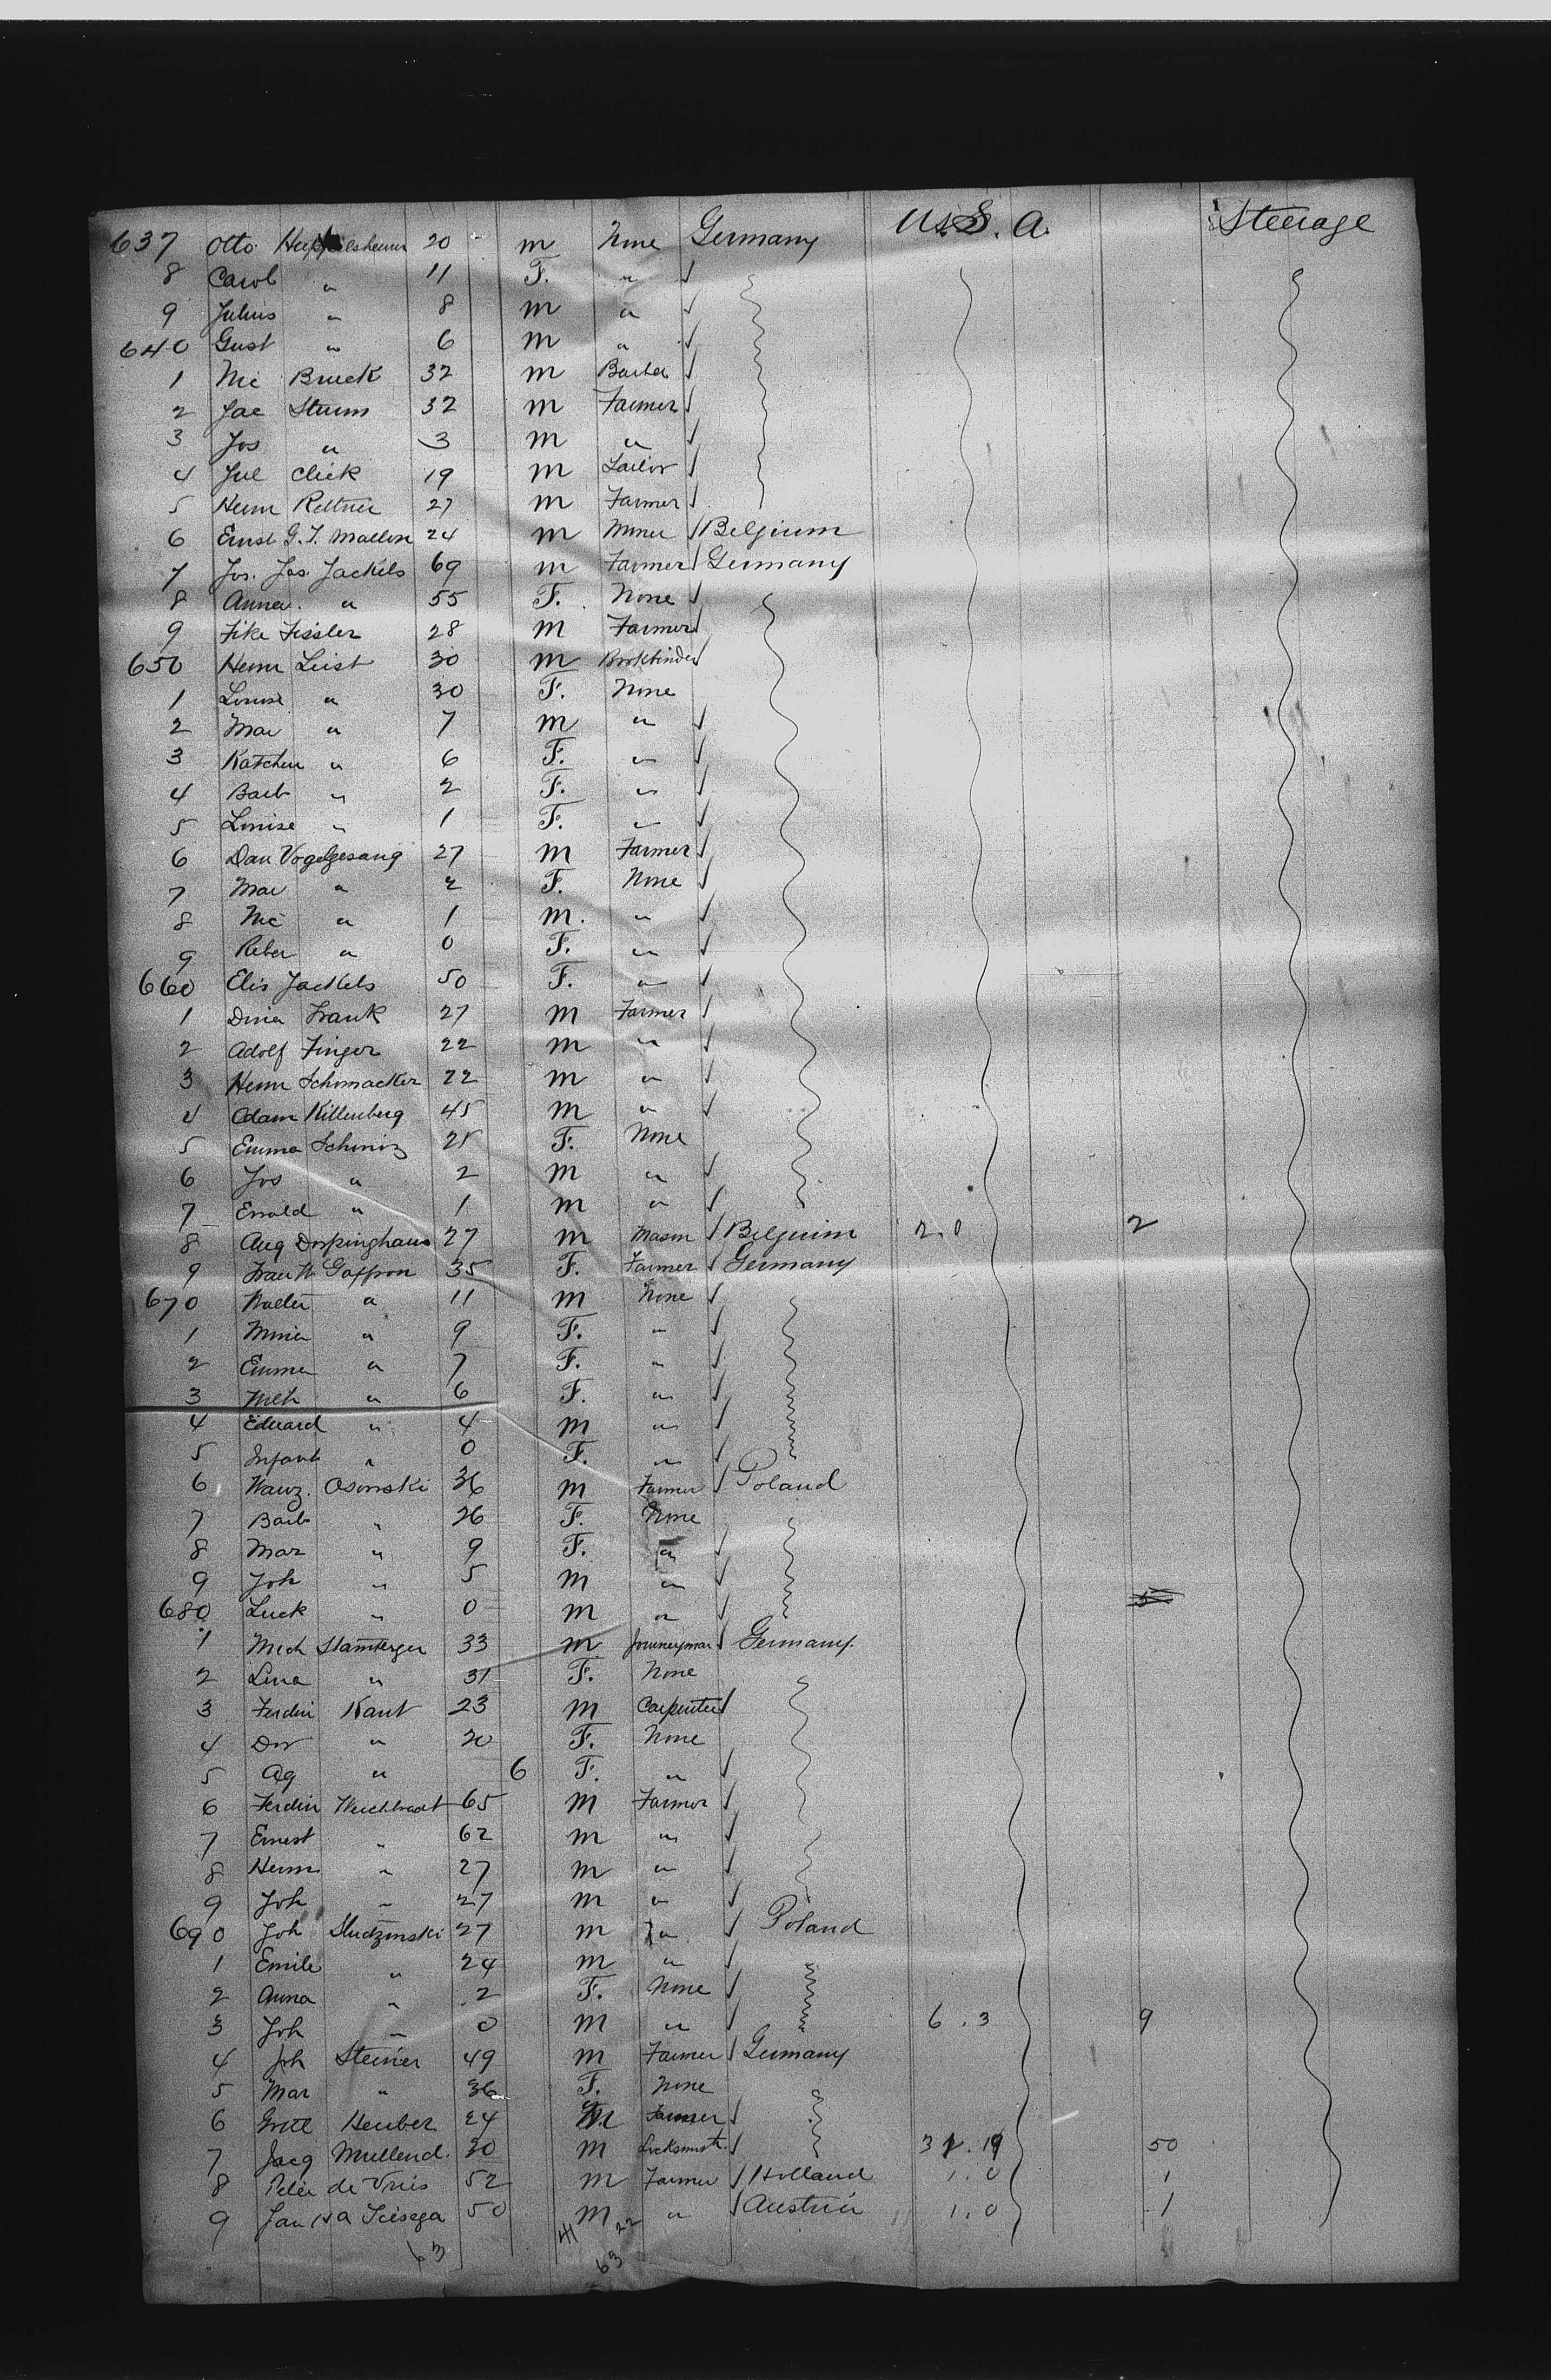 637 Otto 20 m None Germany U.S.A. Steerage
8 Carol " 11 F. "
9 Julius " 8 m "
640 Gust " 6 m "
1 Nic Brueck 32 m Barber
2 Jac Sturm 32 m Farmer
3 Jos " 3 m "
4 Jul Click 19 m Tailor
5 Herm Rettner 27 m Farmer
6 Ernst G. J. Mallon 24 m Miner Belgium
7 Jos. Jos. Jackels 69 m Farmer Germany
8 Anna " 55 F. None
9 Fike Fissler 28 m Farmer
650 Henr Leist 30 m Bookbinder
1 Louise " 30 F. None
2 Mar " 7 m "
3 Katchen " 6 F. "
4 Barb " 2 F. "
5 Louise " 1 F. "
6 Dan Vogelgesang 27 m Farmer
7 Mar " 2 F. None
8 Nic " 1 m. "
9 Reber " 0 F. "
660 Elis Jackels 50 F. "
1 Dina Frank 27 m Farmer
2 Adolf Finger 22 m "
3 Henr Schomacker 22 m "
4 Adam Killenberg 45 m "
5 Emma Schmiz 25 F. None
6 Jos " 2 m "
7 Ewald " 1 m "
8 Aug Dorpinghaus 27 m Mason Belguim 2.0 2
9 Frau W Gaffron 35 F. Farmer Germany
670 Walter " 11 m None
1 Minna " 9 F. "
2 Emma " 7 F. "
3 Wilh " 6 F. "
4 Eduard " 4 m "
5 Infant " 0 F. "
6 Wawz. Osinski 36 m Farmer Poland
7 Barb " 26 F. None
8 Mar " 9 F. "
9 Joh " 5 m "
680 Luck " 0 m "
1 Mich Stamberger 33 m Journeyman Germany.
2 Lina " 31 F. None
3 Ferdin Kant 23 m Carpenter
4 Dor " 20 F. None
5 Ag " 6 F. "
6 Ferdin 65 m Farmer
7 Ernest " 62 m "
8 Herm " 27 m "
9 Joh " 27 m "
690 Joh Studzinski 27 m " Poland
1 Emile " 24 m "
2 Anna " 2 F. None
3 Joh " 0 m " 6.3 9
4 Joh Steiner 49 m Farmer Germany
5 Mar " 36 F. None
6 Heuber 24 m Farmer
7 Jacq Mullend. 30 m Locksmith 50
8 Peter de Vries 52 m Farmer Holland 1.0 1
9 Jan 50 m " Austria 1.0 1
63 41 22
63